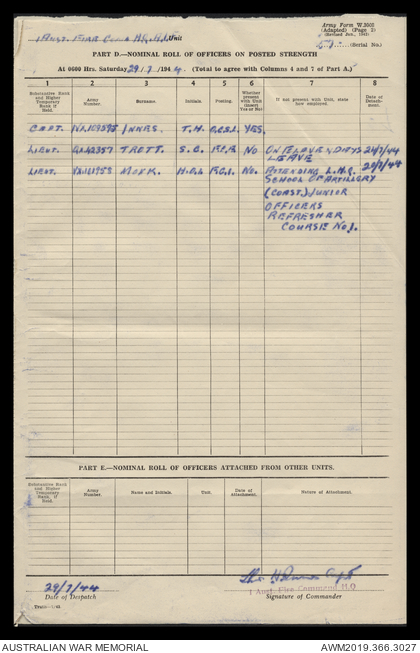 Army Form W.3008
(Adapted) (Page 2)
1 Aust. Fire Com'd H.Q. A.I.F. Unit
(Serial No.)
PART D.—NOMINAL ROLL OF OFFICERS ON POSTED STRENGTH
At 0600 Hrs. Saturday 29/7/1944. (Total to agree with Columns 4 and 7 of Part A.)
1 2 3 4 5 6 7 8
Substantive Rank and Higher Temporary Rank if Held. Army Number. Surname. Initials. Posting. Whether present with Unit (Insert Yes or No) If not present with Unit, state how employed. Date of Detachment.
CAPT. INNES. T.H. YES.
LIEUT. TRETT. S.C. NO ON ELEVEN DAYS 24/7/44
LEAVE
LIEUT. MONK. NO. ATTENDING L.H.Q. 20/7/44
SCHOOL OF ARTILLERY
(COAST) JUNIOR
OFFICERS
REFRESHER
COURSE No 1.
PART E.—NOMINAL ROLL OF OFFICERS ATTACHED FROM OTHER UNITS.
Substantive Rank and Higher Temporary Rank, if Held. Army Number. Name and Initials. Unit. Date of Attachment. Nature of Attachment.
29/7/44
1 Aust. Fire Command H.Q
Date of Despatch Signature of Commander
AUSTRALIAN WAR MEMORIAL AWM2019.366.3027